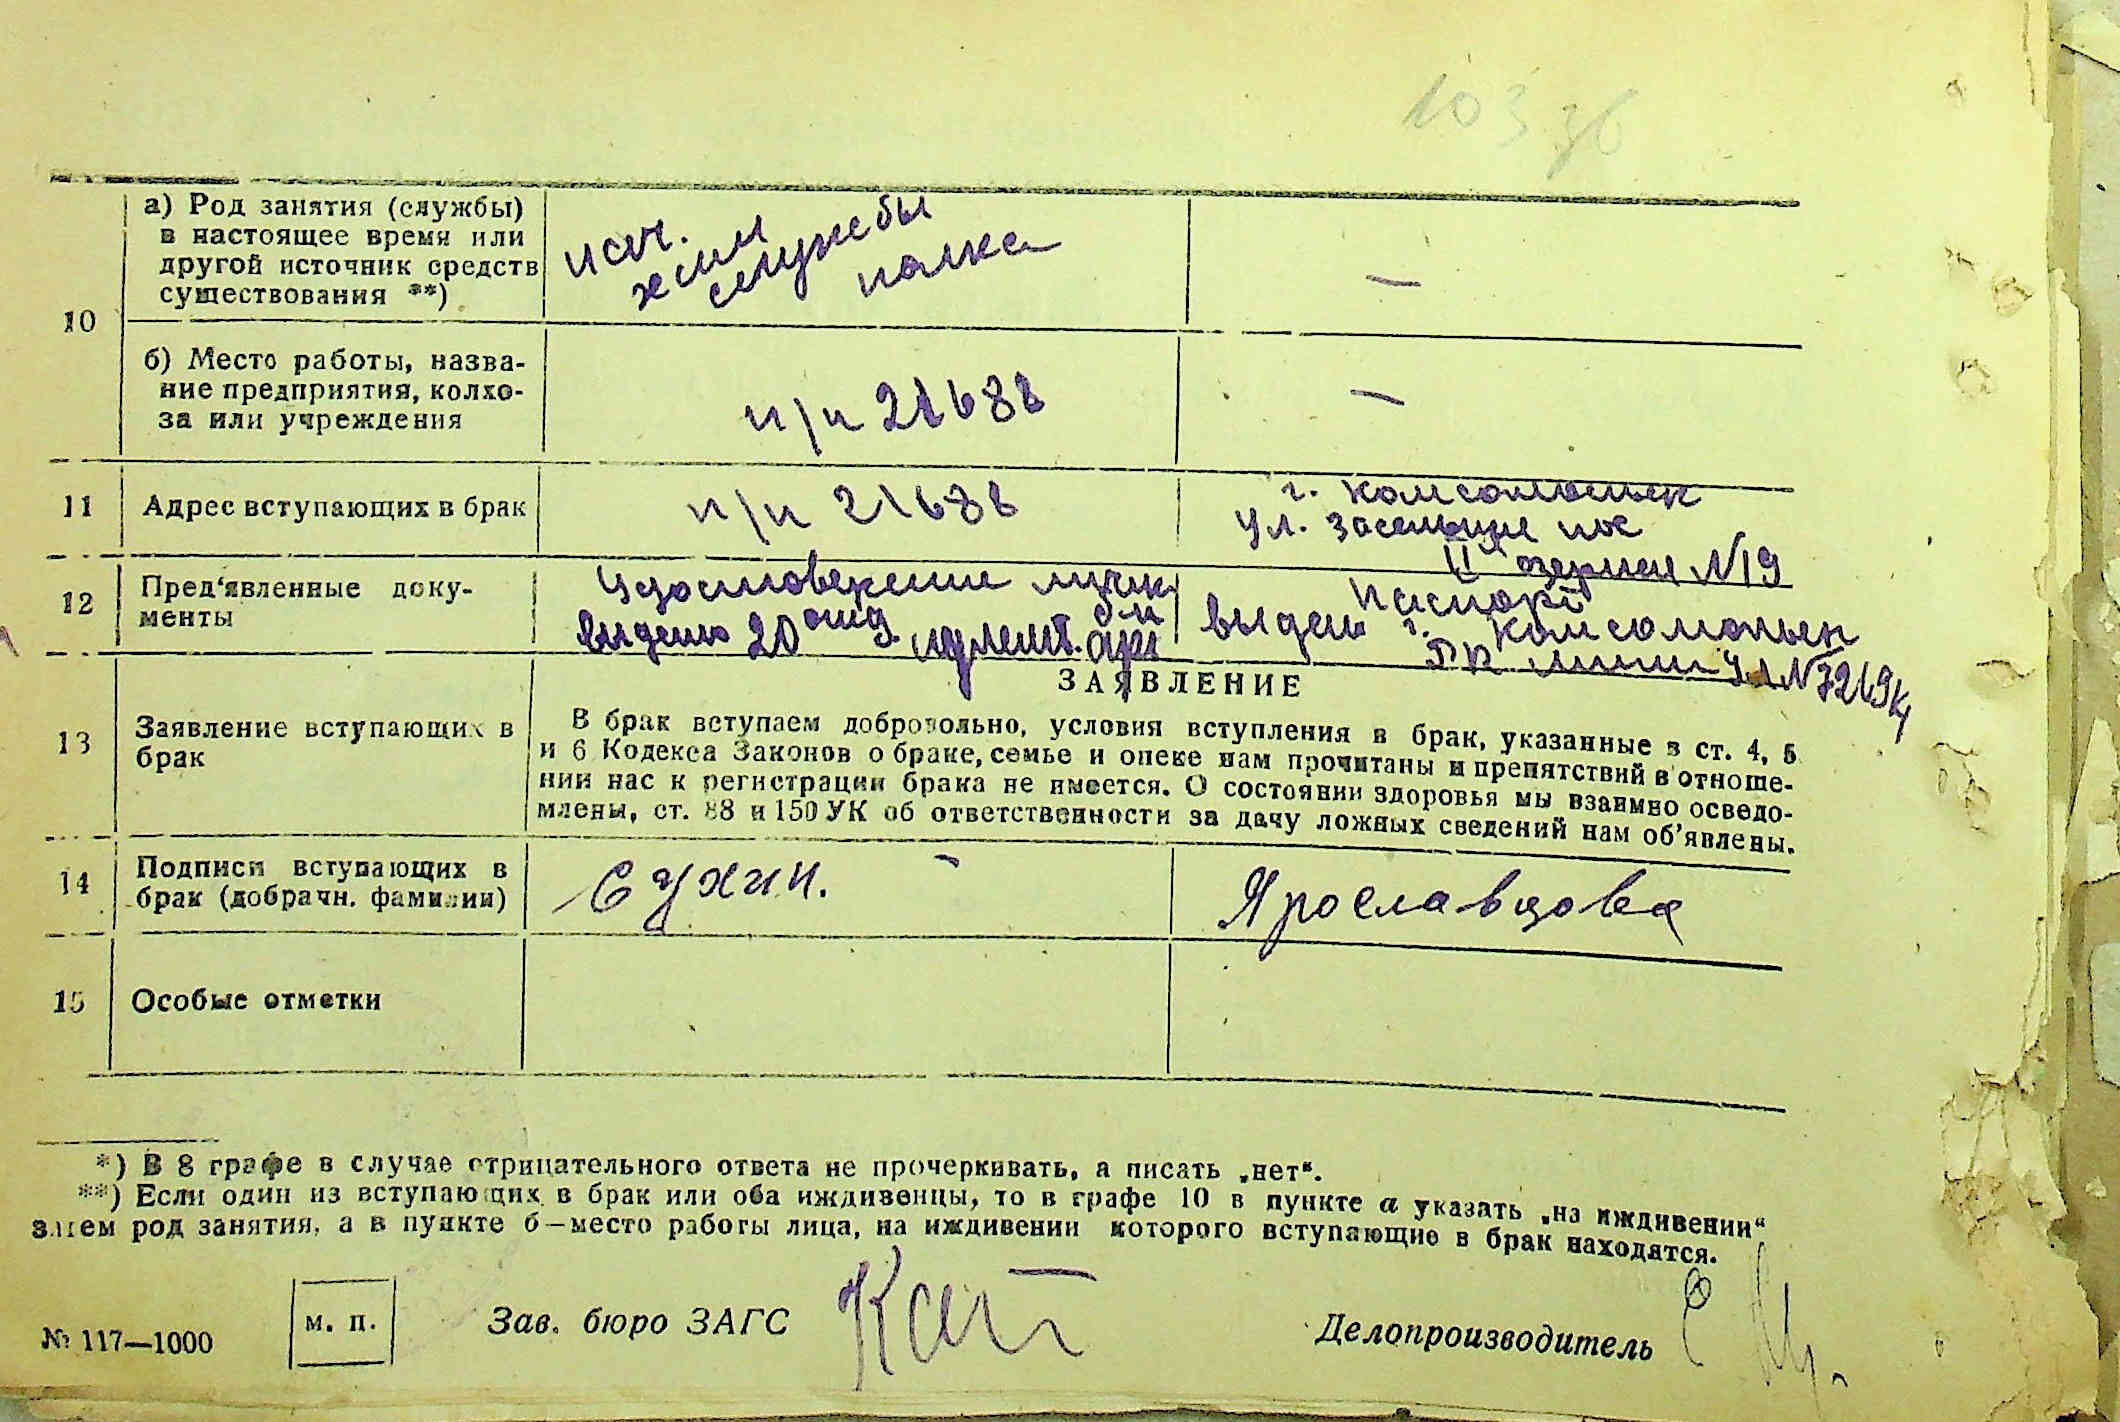 103 зб
а) Род занятия (службы)
в настоящее время или
другой источник средств
существования **)
нач.
хим
службы
полка
—
—
10
б) Место работы, назва-
ние предприятия, колхо-
за или учреждения
п/п 21688
—
11
Адрес вступающих в брак
п/п 21688
г. Комсомольск
ул.
№ 19
12
Пред'явленные доку-
менты
Удостоверение личн.
выдано 20
Паспорт
выдан г. Комсомольск
ЗАЯВЛЕНИЕ
13
Заявление вступающих в
брак
В брак вступаем добровольно, условия вступления в брак, указанные в ст. 4, 5
и 6 Кодекса Законов о браке, семье и опеке нам прочитаны и препятствий в отноше-
нии нас к регистрации брака не имеется. О состоянии здоровья мы взаимно осведо-
млены, ст. 88 и 150 УК об ответственности за дачу ложных сведений нам об'явлены.
14
Подписи вступающих в
брак (добрачн. фамилии)
Сухин.
Ярославцова
15
Особые отметки
*) В 8 графе в случае отрицательного ответа не прочеркивать, а писать „нет“.
**) Если один из вступающих в брак или оба иждивенцы, то в графе 10 в пункте а указать „на иждивении“
затем род занятия, а в пункте б—место работы лица, на иждивении которого вступающие в брак находятся.
№ 117—1000
м. п.
Зав. бюро ЗАГС
Делопроизводитель